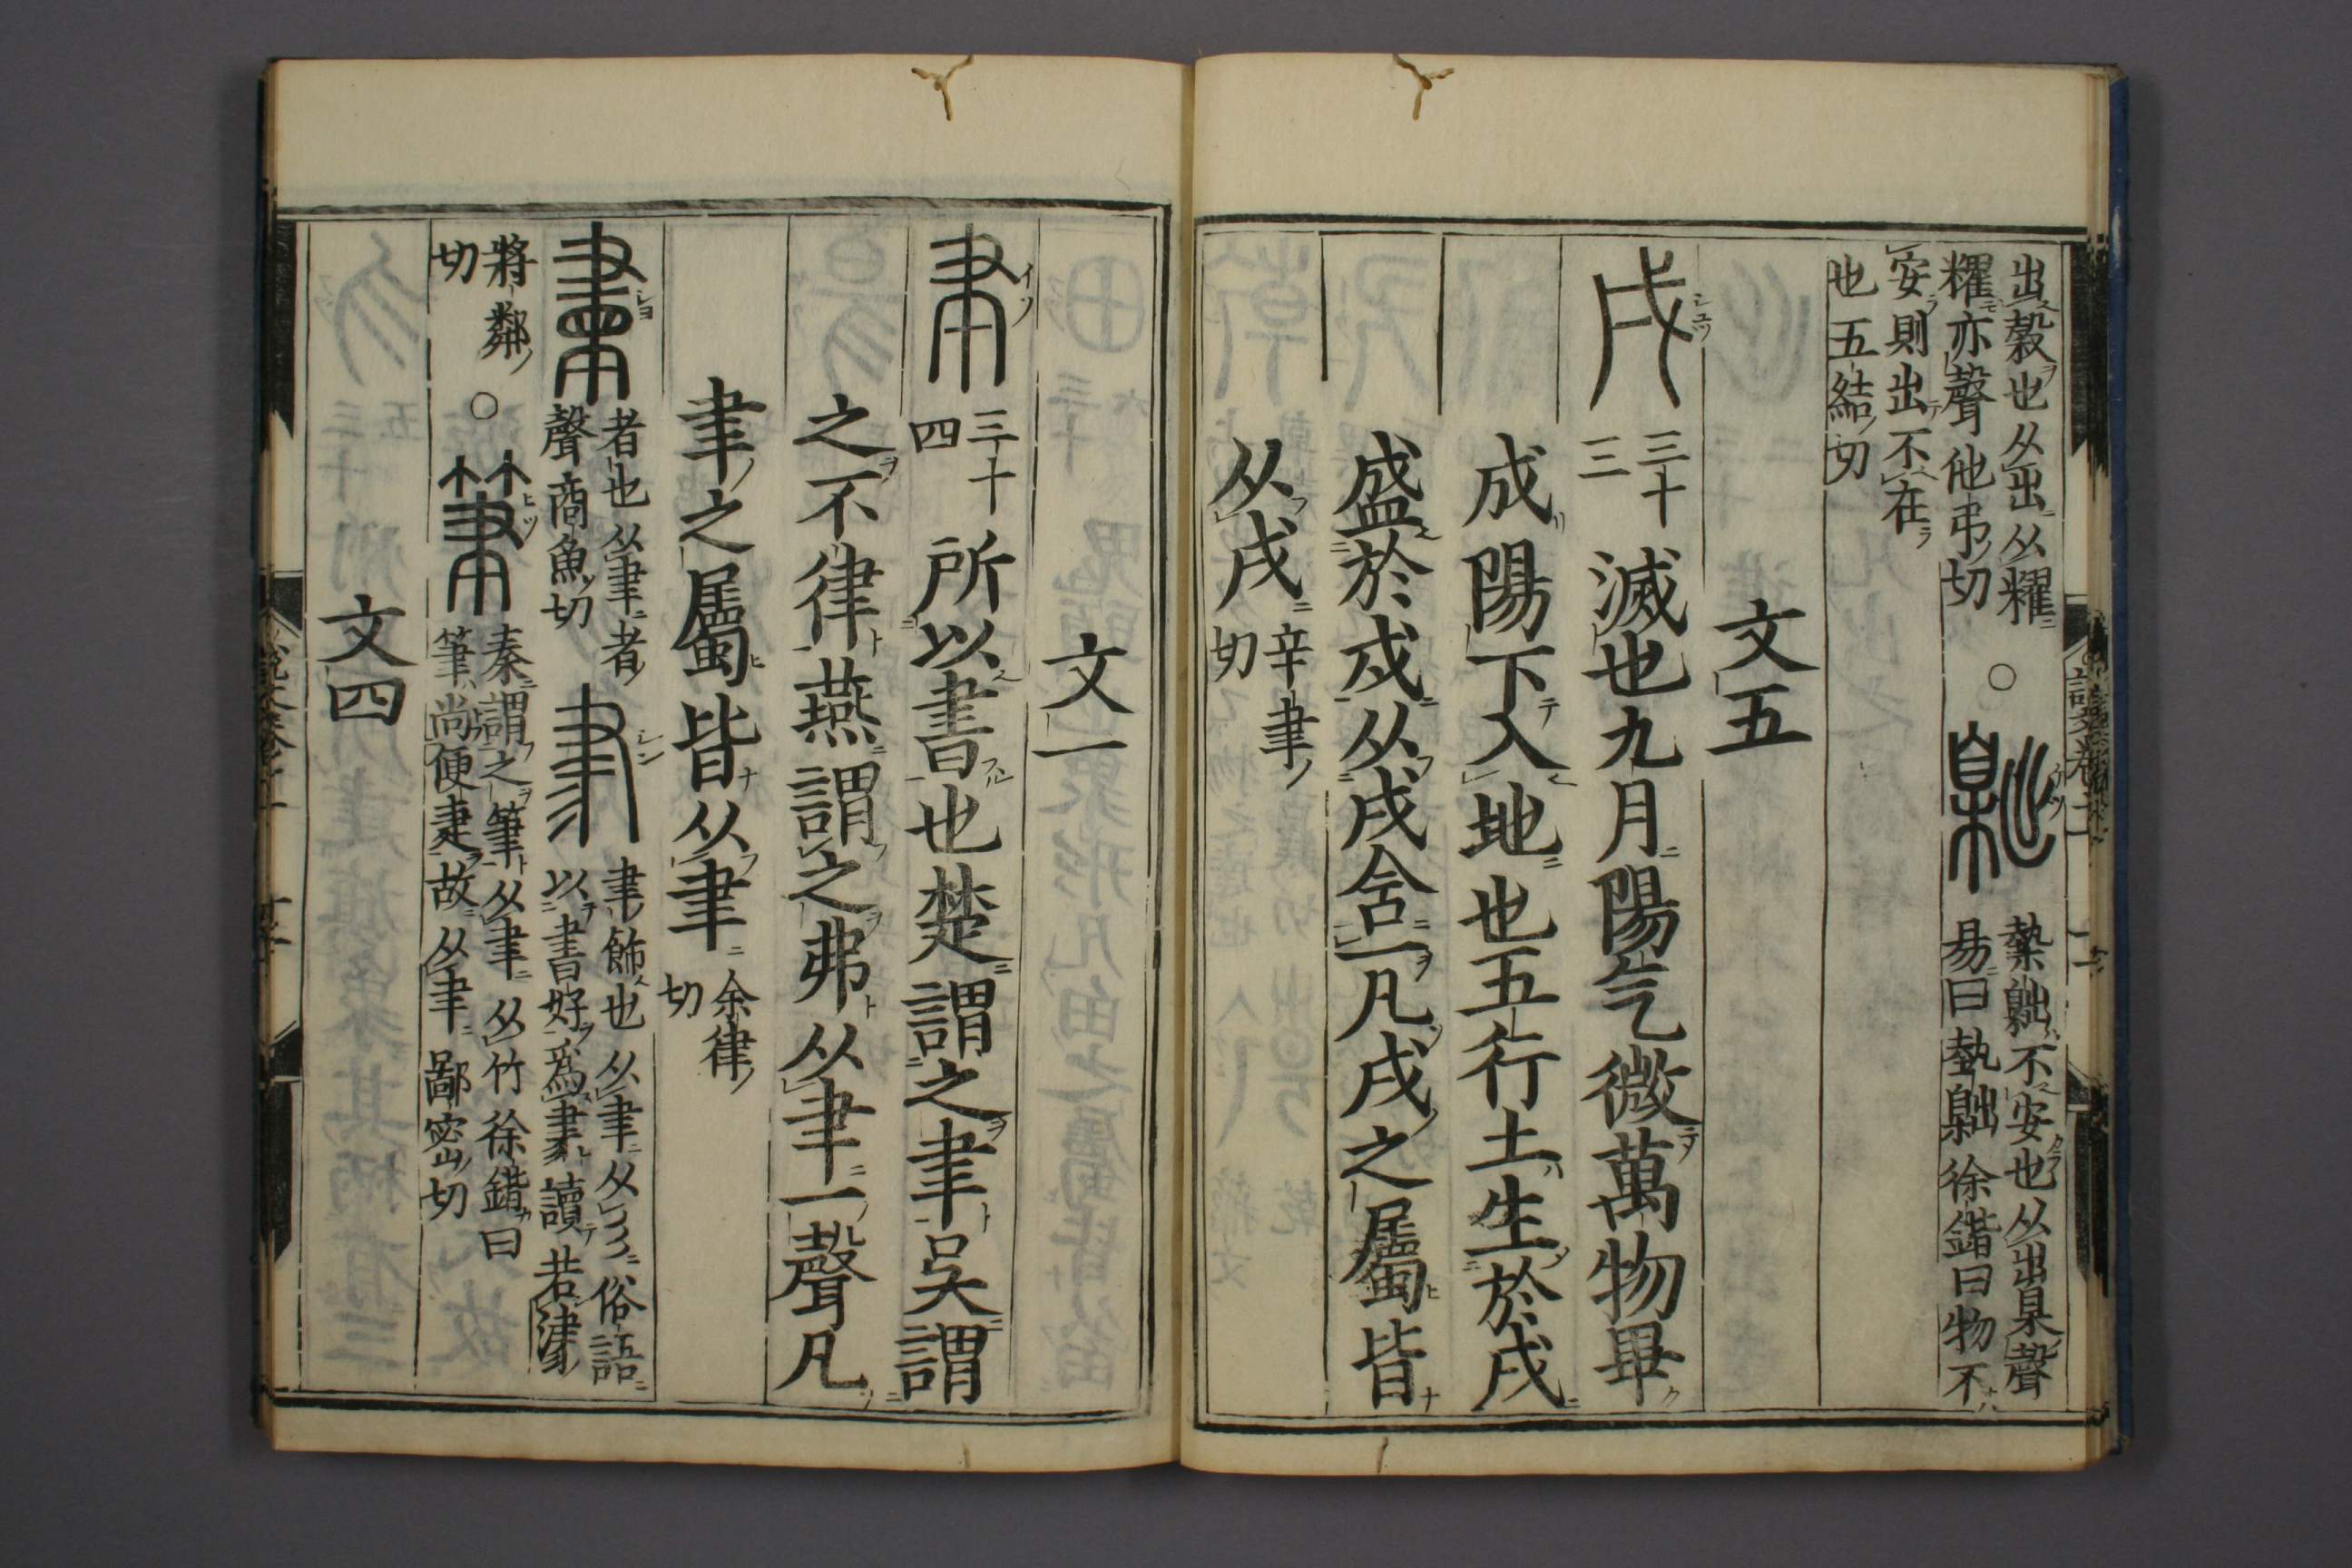 出穀也从出从糴
糴亦聲他弔切
○
𣝕
槷𣝕不安也从出臬聲
易曰槷𣝕徐鍇曰物不
安則出不在
也五結切
文五
戌
三十
三
滅也九月陽气微萬物畢
成陽下入地也五行土生於戌
盛於戊从戊含一凡戌之屬皆
从戌
辛聿
切
文一
聿
三十
四
所以書也楚謂之聿吳謂
之不律燕謂之弗从𦘒一聲凡
聿之屬皆从聿
余律
切
書
者也从聿者
聲商魚切
𦘔
聿飾也从聿从彡俗語
以書好爲𦘔讀若津
將鄰
切
○
筆
秦謂之筆从聿从竹徐鍇曰
筆尚便疌故从聿鄙密切
文四